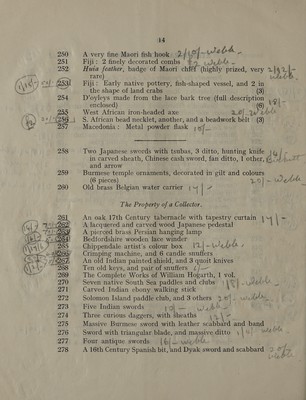 14
250 A very fine Maori fish hook 2/10/- Webb.
251 Fiji: 2 finely decorated combs Webb.
252 Huia feather, badge of Maori chief (highly prized, very
rare) Webb.
253 Fiji: Early native pottery, fish-shaped vessel, and 2 in
the shape of land crabs (3)
254 D'oyleys made from the lace bark tree (full description
enclosed) (6)
255 West African iron-headed axe Webb
256 S. African bead necklet, another, and a beadwork belt (3)
257 Macedonia: Metal powder flask 10/-
258 Two Japanese swords with tsubas, 3 ditto, hunting knife
in carved sheath, Chinese cash sword, fan ditto, 1 other,
and arrow
259 Burmese temple ornaments, decorated in gilt and colours
(6 pieces) 20/- Webb.
260 Old brass Belgian water carrier
The Property of a Collector.
261 An oak 17th Century tabernacle with tapestry curtain
262 A lacquered and carved wood Japanese pedestal
263 A pierced brass Persian hanging lamp
264 Bedfordshire wooden lace winder
265 Chippendale artist's colour box Webb.
266 Crimping machine, and 6 candle snuffers
267 An old Indian painted shield, and 3 quirt knives
268 Ten old keys, and pair of snuffers
269 The Complete Works of William Hogarth, 1 vol.
270 Seven native South Sea paddles and clubs
271 Carved Indian ebony walking stick
272 Solomon Island paddle club, and 3 others
273 Five Indian swords
274 Three curious daggers, with sheaths
275 Massive Burmese sword with leather scabbard and band
276 Sword with triangular blade, and massive ditto
277 Four antique swords Webb.
278 A 16th Century Spanish bit, and Dyak sword and scabbard